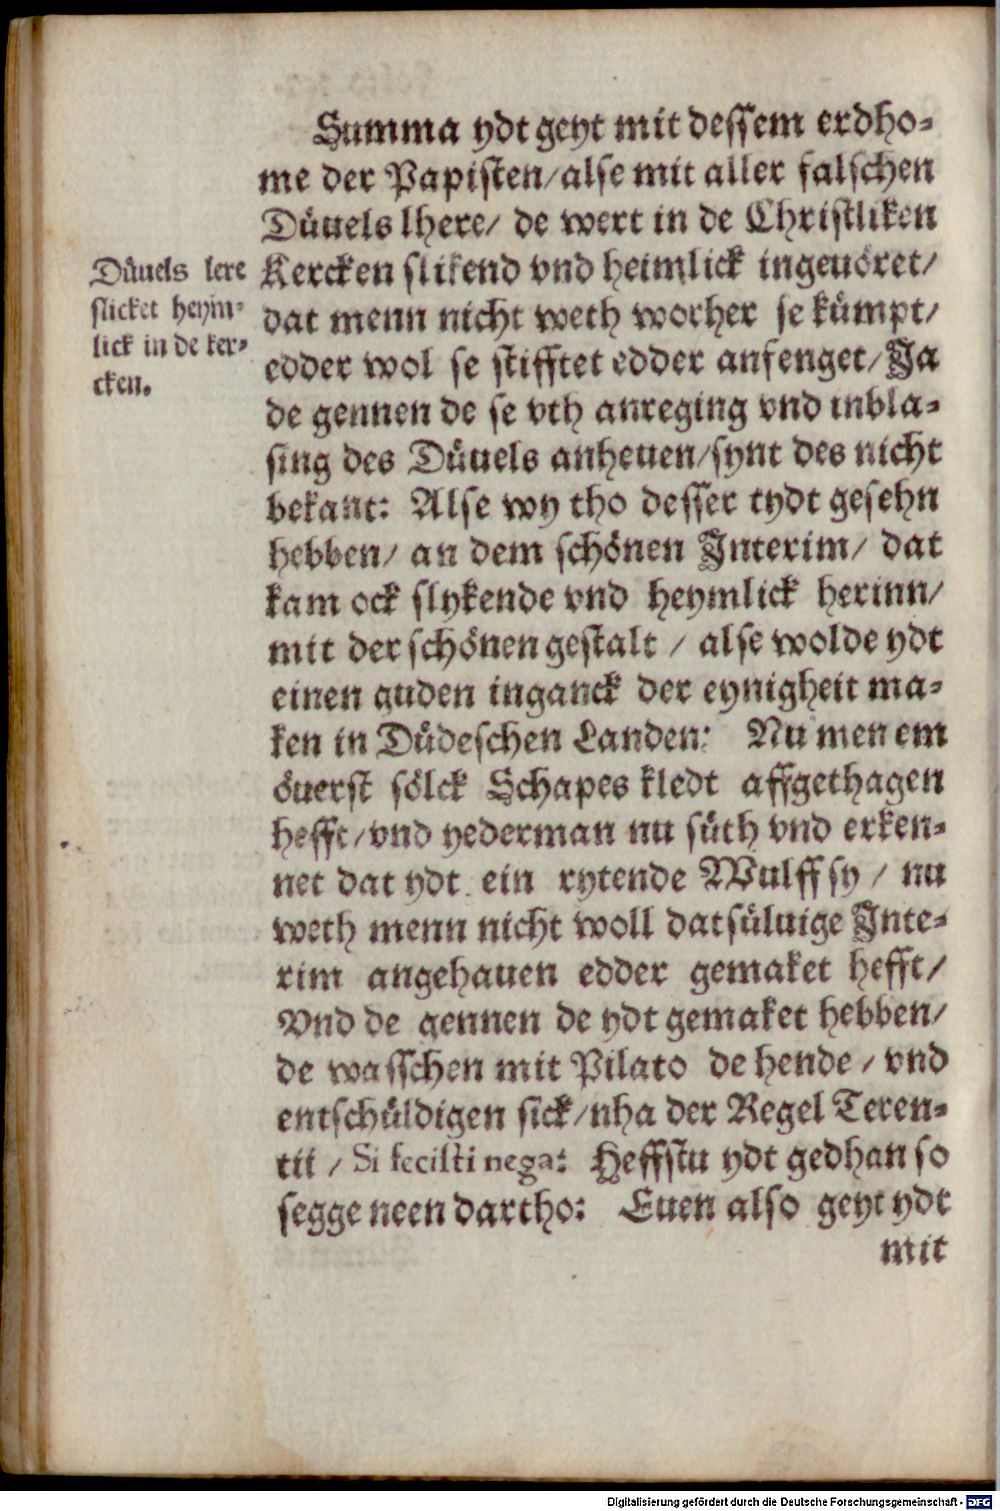 Summa ydt geyt mit dessem erdho-
me der Papisten/ alse mit aller falschen
Düuels lhere/ de wert in de Christliken
Kercken slikend vnd heimlick ingeuöret/
dat menn nicht weth worher se kümpt/
edder wol se stifftet edder anfenget/ Ja
de gennen de se vth anreging vnd inbla-
sing des Düuels anheuen/ synt des nicht
bekant: Alse wy tho desser tydt gesehn
hebben/ an dem schönen Interim/ dat
kam ock slykende vnd heymlick herinn/
mit der schönen gestalt / alse wolde ydt
einen guden inganck der eynigheit ma-
ken in Düdeschen Landen: Nu men em
öuerst sölck Schapes kledt affgethagen
hefft/ vnd yederman nu süth vnd erken-
net dat ydt ein rytende Wulff sy / nu
weth menn nicht woll datsüluige Inte-
rim angehauen edder gemaket hefft/
Vnd de gennen de ydt gemaket hebben/
de wasschen mit Pilato de hende / vnd
entschüldigen sick/ nha der Regel Teren-
tii / Si fecisti nega: Heffstu ydt gedhan so
segge neen dartho: Euen also geyt ydt
mit
Düuels lere
slicket heym-
lick in de ker-
cken.
Digitalisierung gefördert durch die Deutsche Forschungsgemeinschaft - DFG